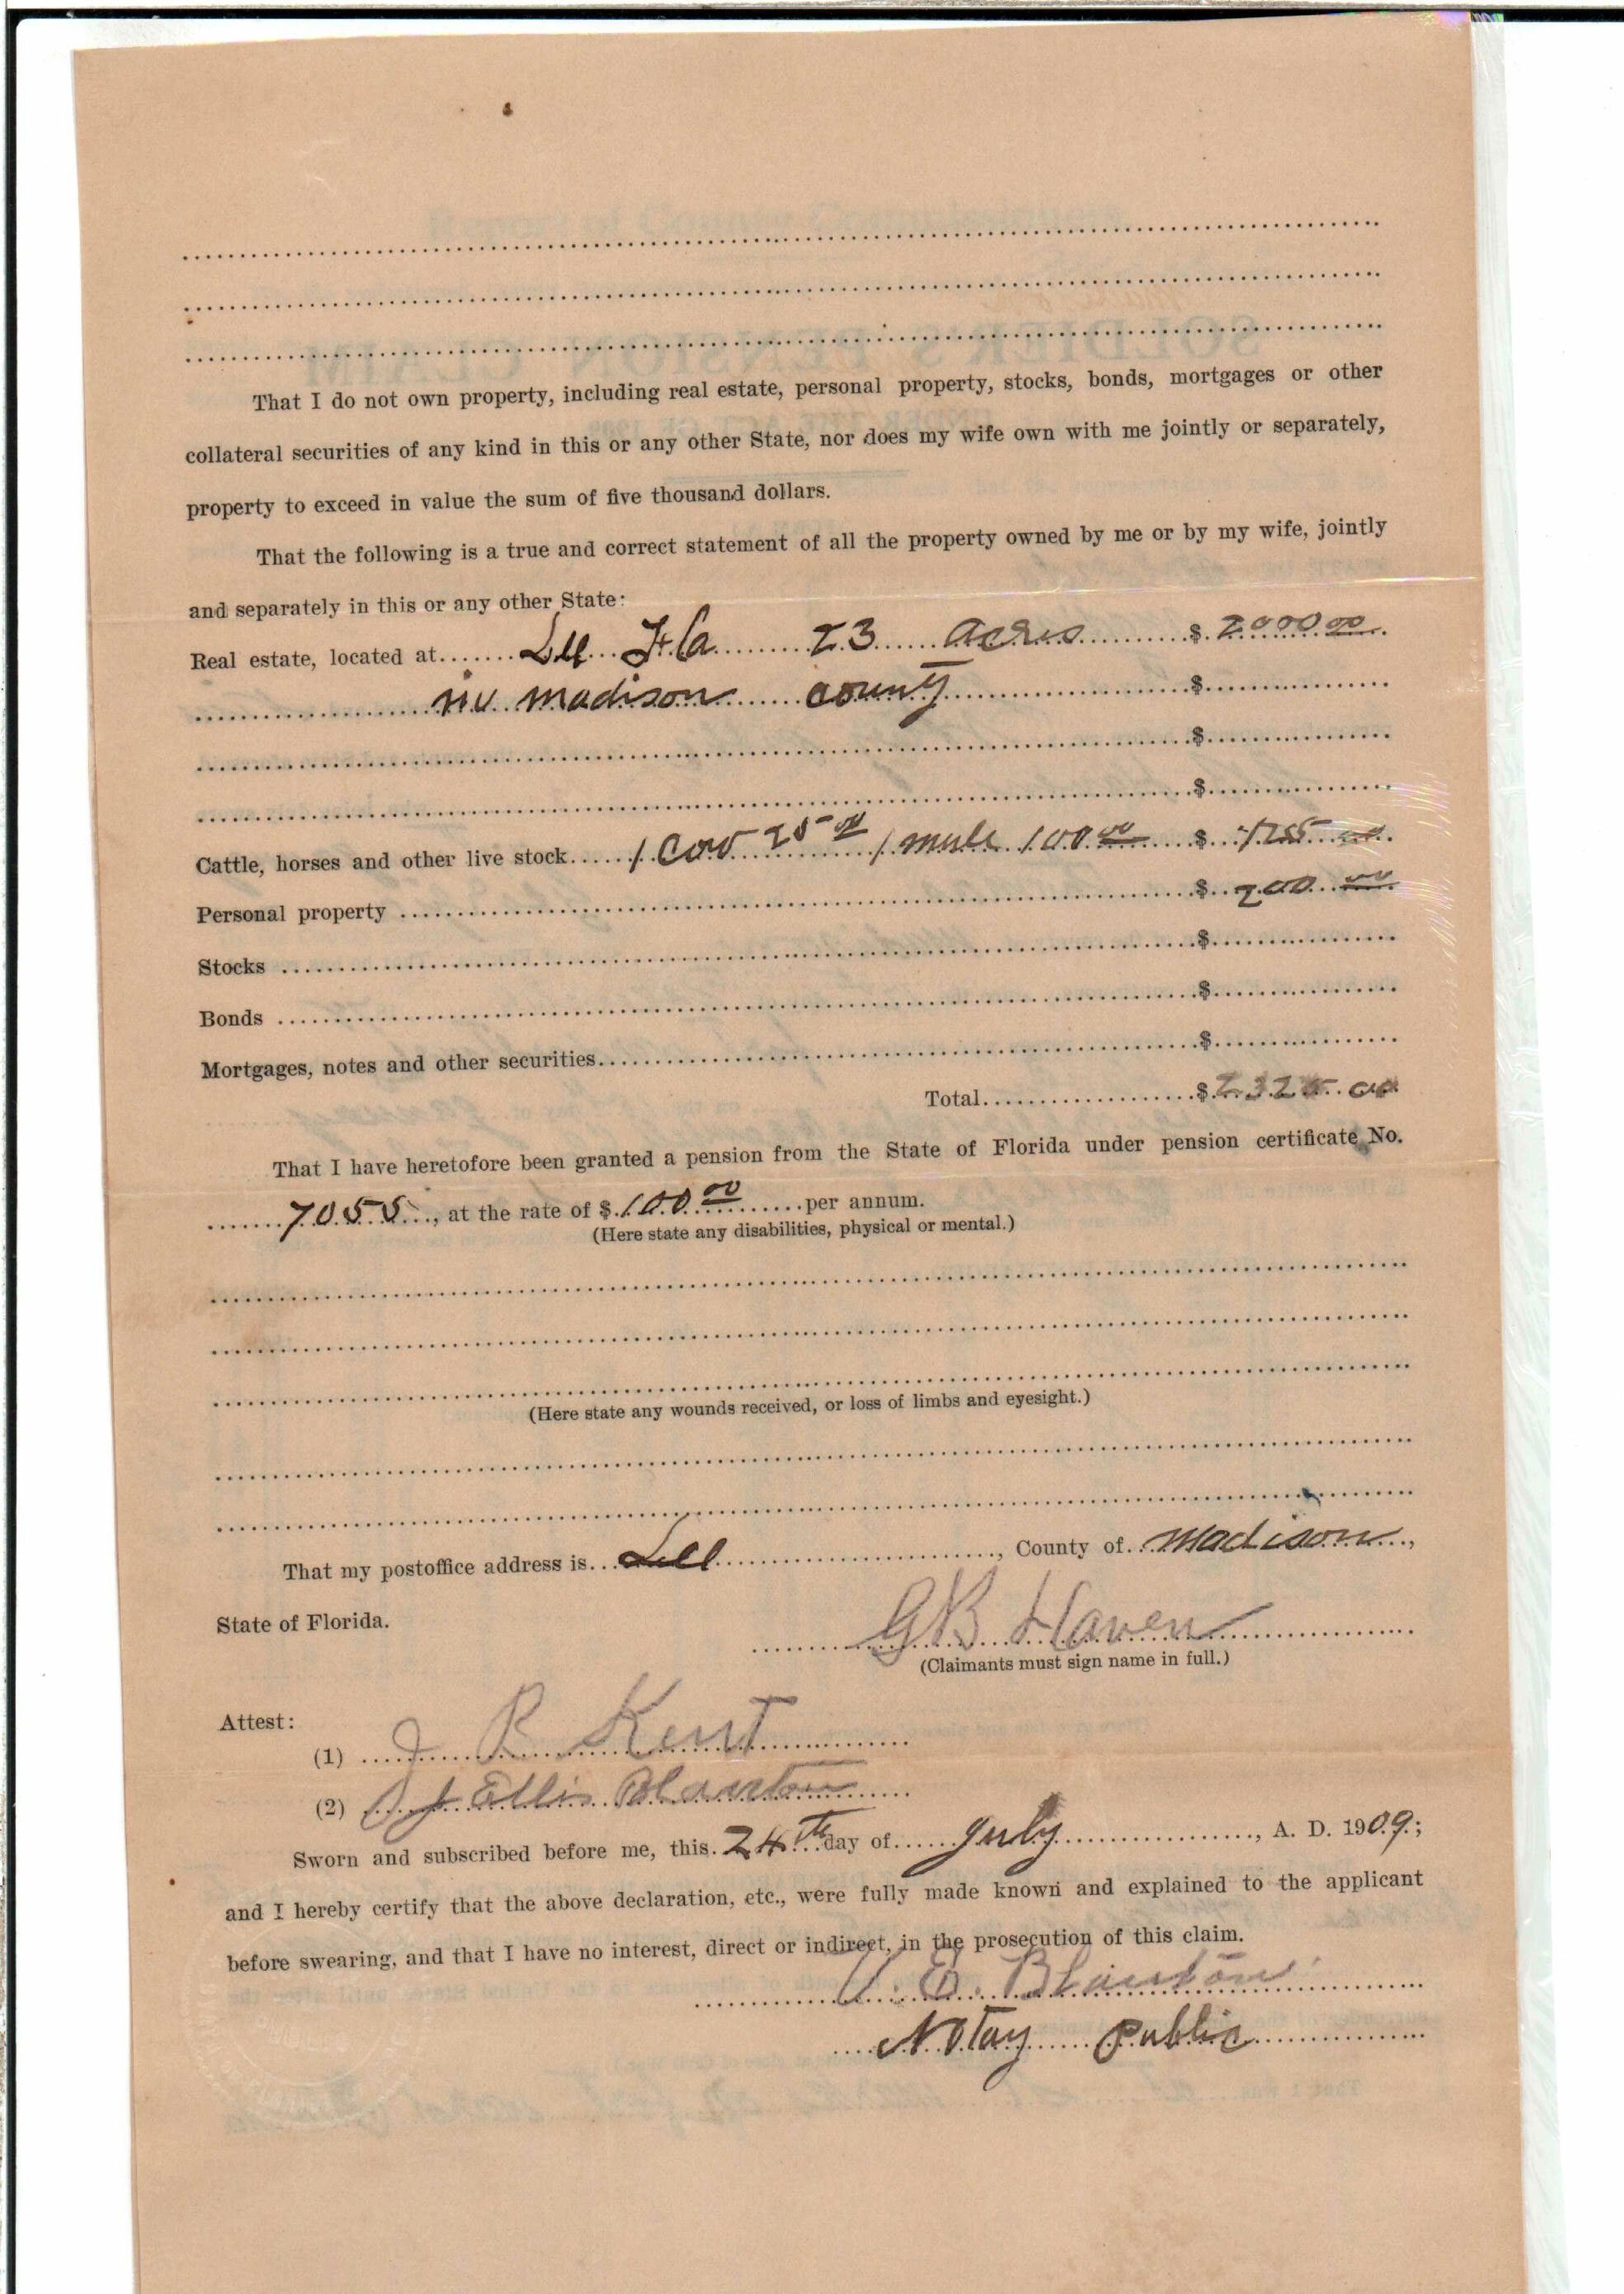 That I do not own property, including real estate, personal property, stocks, bonds, mortgages or other
collateral securities of any kind in this or any other State, nor does my wife own with me jointly or separately,
property to exceed in value the sum of five thousand dollars.
That the following is a true and correct statement of all the property owned by me or by my wife, jointly
and separately in this or any other State:
Real estate, located at Lee Fla 23 acres $ 2000 00
in madison county $
$
$
Cattle, horses and other live stock 1 Cow 25 00 1 mule 100 00 $ 125 00
Personal property $ 200 00
Stocks $
Bonds $
Mortgages, notes and other securities $
Total $ 2325 00
That I have heretofore been granted a pension from the State of Florida under pension certificate No.
7055, at the rate of $ 100 00 per annum.
(Here state any disabilities, physical or mental.)
(Here state any wounds received, or loss of limbs and eyesight.)
That my postoffice address is Lee, County of Madison,
State of Florida.
G B Haven
(Claimants must sign name in full.)
Attest:
(1) J R Kent
(2) J Ellis Blanton
Sworn and subscribed before me, this 24th day of July, A. D. 1909;
and I hereby certify that the above declaration, etc., were fully made known and explained to the applicant
before swearing, and that I have no interest, direct or indirect, in the prosecution of this claim.
Blanton
Notay Public